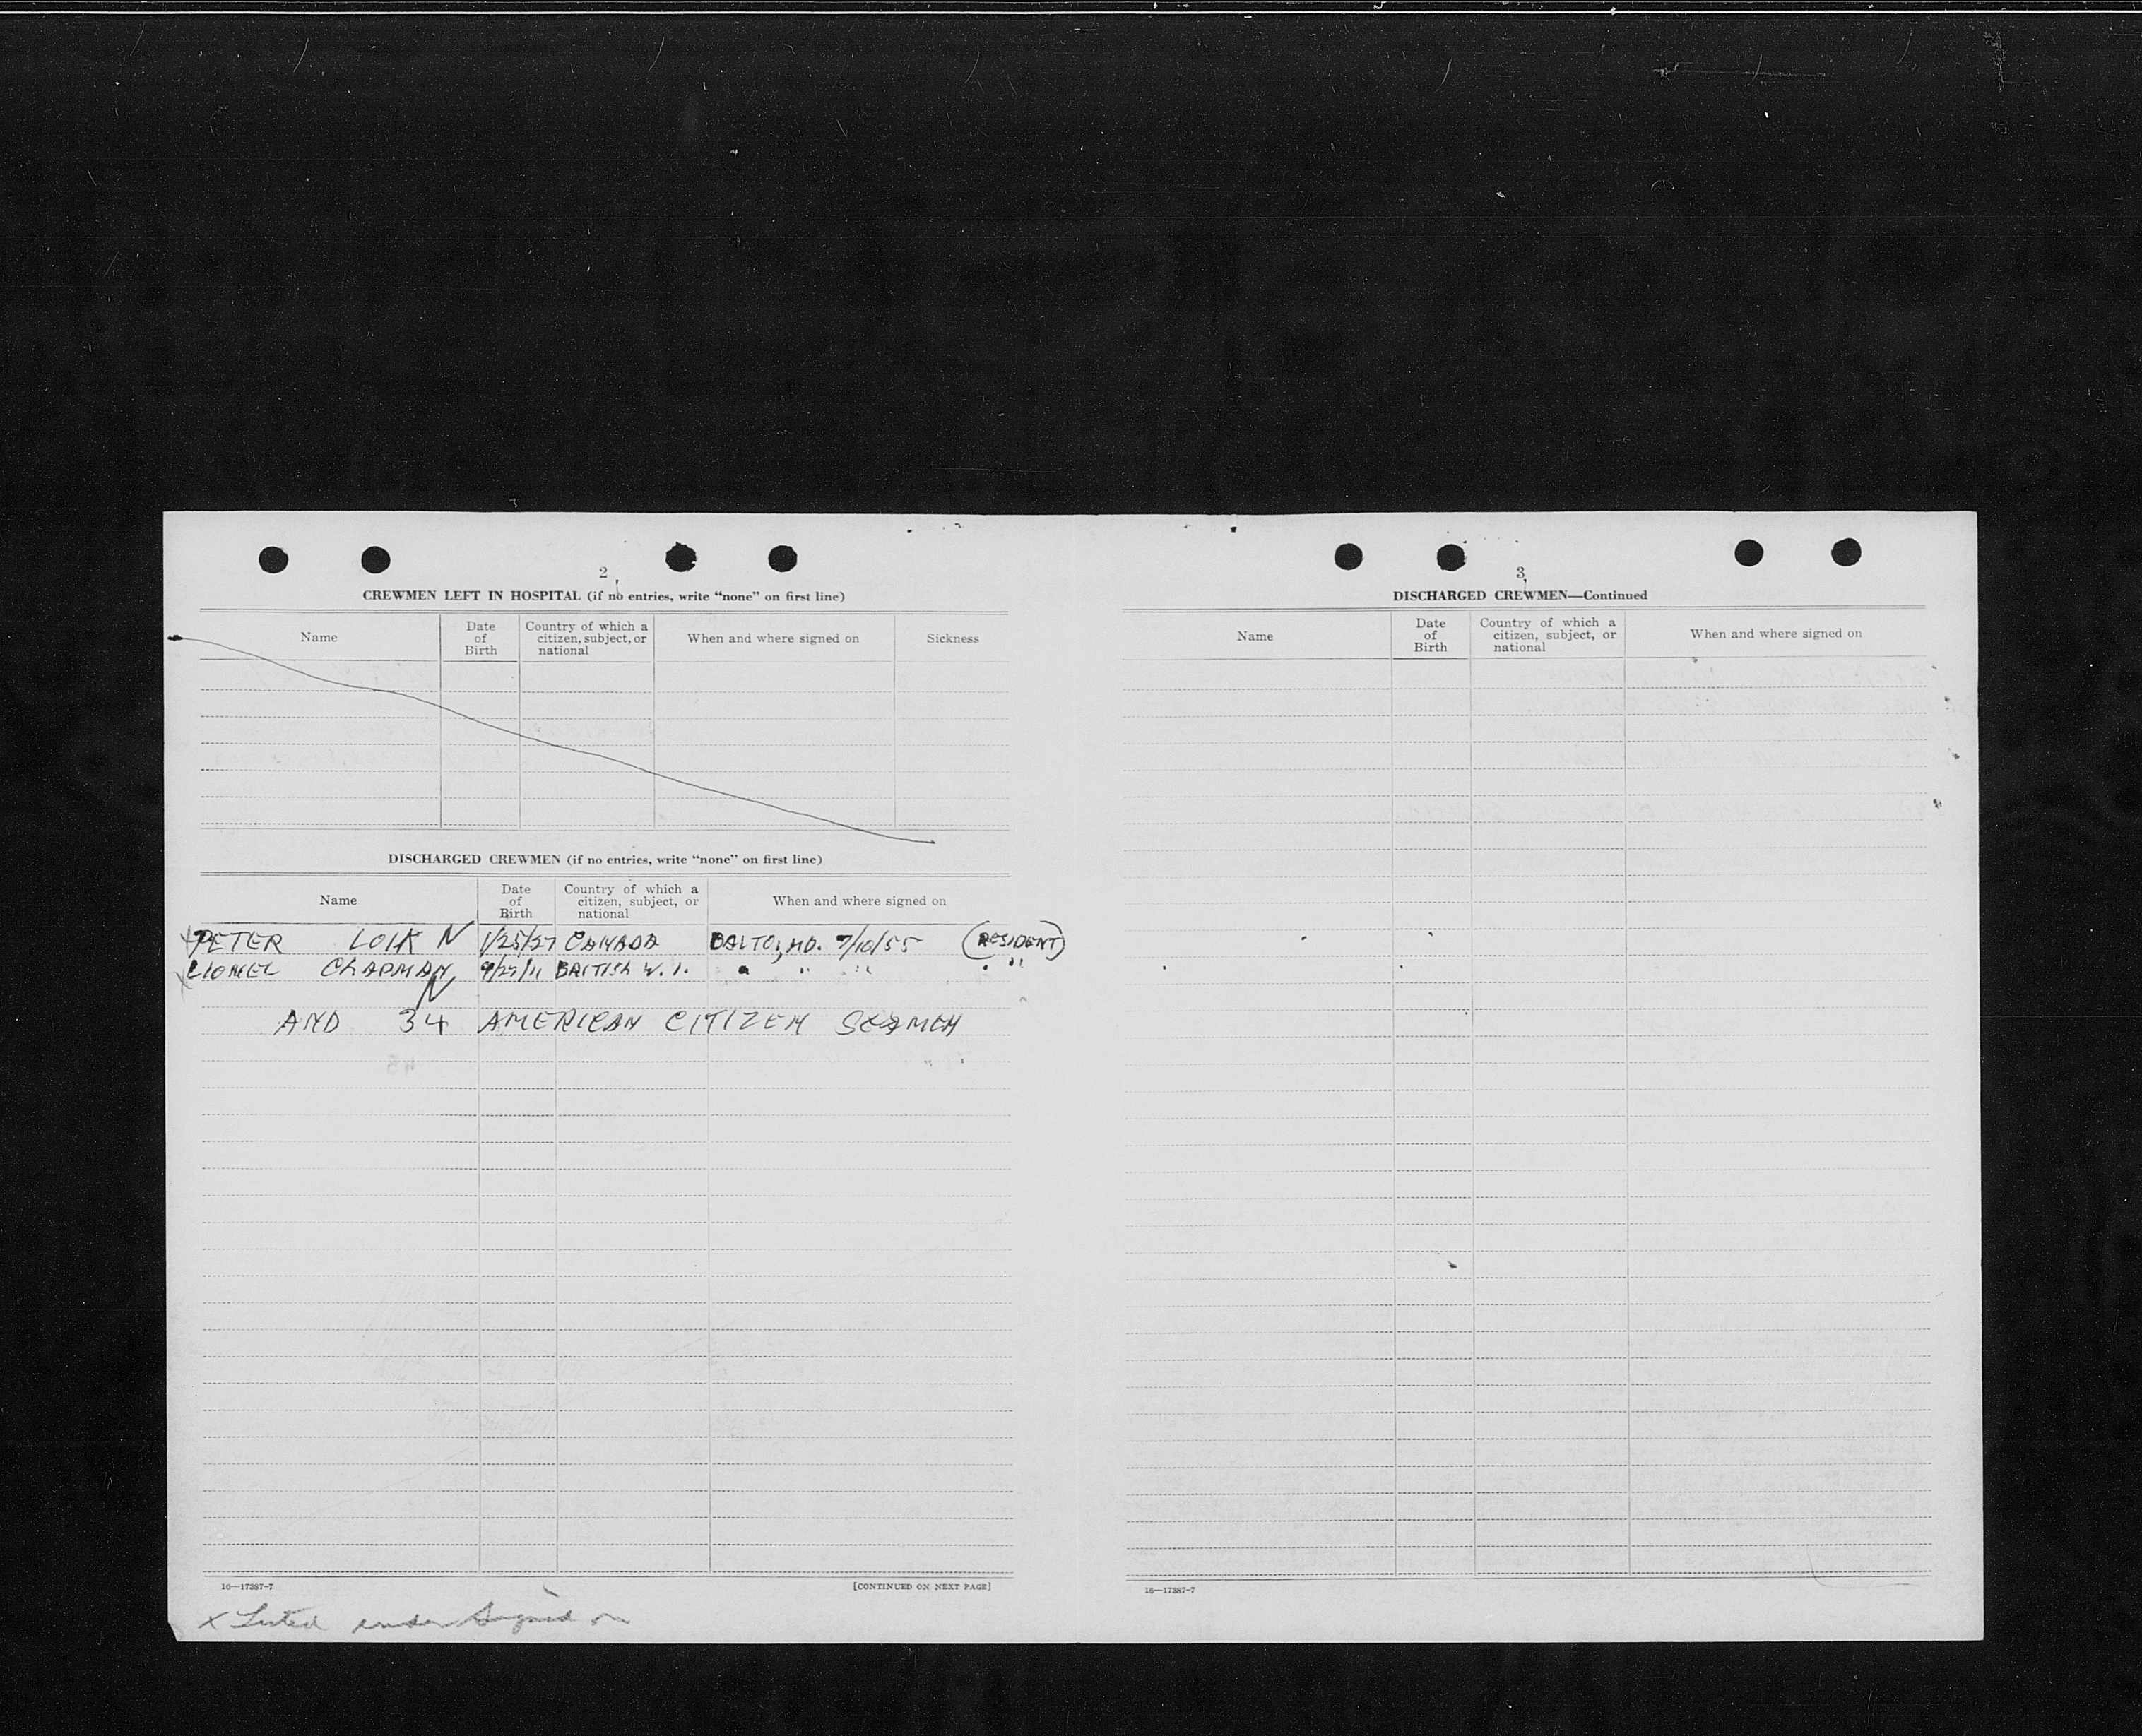 2
CREWMEN LEFT IN HOSPITAL (if no entries, write “none” on first line)
Name
Date of Birth
Country of which a citizen, subject, or national
When and where signed on
Sickness
DISCHARGED CREWMEN (if no entries, write “none” on first line)
Name
Date of Birth
Country of which a citizen, subject, or national
When and where signed on
PETER LOIK N 1/25/27 CANADA BALTO, MD. 7/10/55 (RESIDENT)
LIONEL CHAPMAN 9/27/11 BRITISH W. I. " " " "
N
AND 34 AMERICAN CITIZEN SEAMEN
16—17387-7
[CONTINUED ON NEXT PAGE]
x Listed under Signed on
3
DISCHARGED CREWMEN—Continued
Name
Date of Birth
Country of which a citizen, subject, or national
When and where signed on
16—17387-7